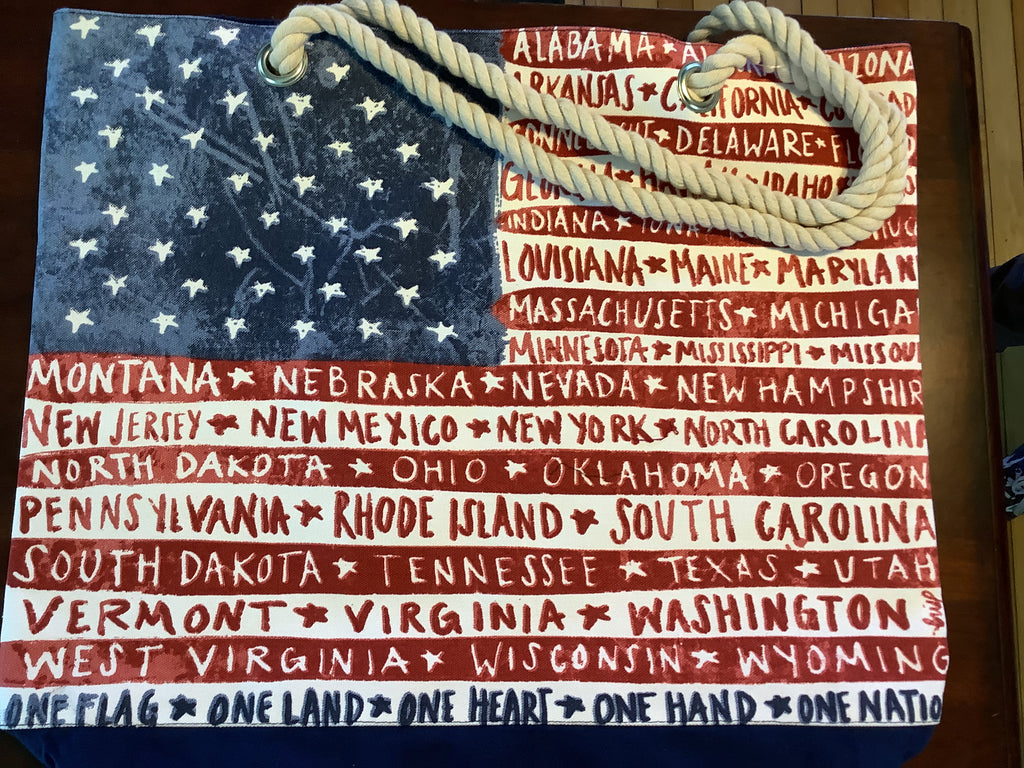 ALABAMA ★ ARIZONA
ARKANSAS ★ CALIFORNIA ★
CONNECTICUT ★ DELAWARE ★
GEORGIA ★ IDAHO ★
INDIANA ★ IOWA ★
LOUISIANA ★ MAINE ★ MARYLAN
MASSACHUSETTS ★ MICHIGA
MINNESOTA ★ MISSISSIPPI ★ MISSOU
MONTANA ★ NEBRASKA ★ NEVADA ★ NEW HAMPSHIR
NEW JERSEY ★ NEW MEXICO ★ NEW YORK ★ NORTH CAROLINA
NORTH DAKOTA ★ OHIO ★ OKLAHOMA ★ OREGON
PENNSYLVANIA ★ RHODE ISLAND ★ SOUTH CAROLINA
SOUTH DAKOTA ★ TENNESSEE ★ TEXAS ★ UTAH
VERMONT ★ VIRGINIA ★ WASHINGTON
WEST VIRGINIA ★ WISCONSIN ★ WYOMING
ONE FLAG ★ ONE LAND ★ ONE HEART ★ ONE HAND ★ ONE NATIO